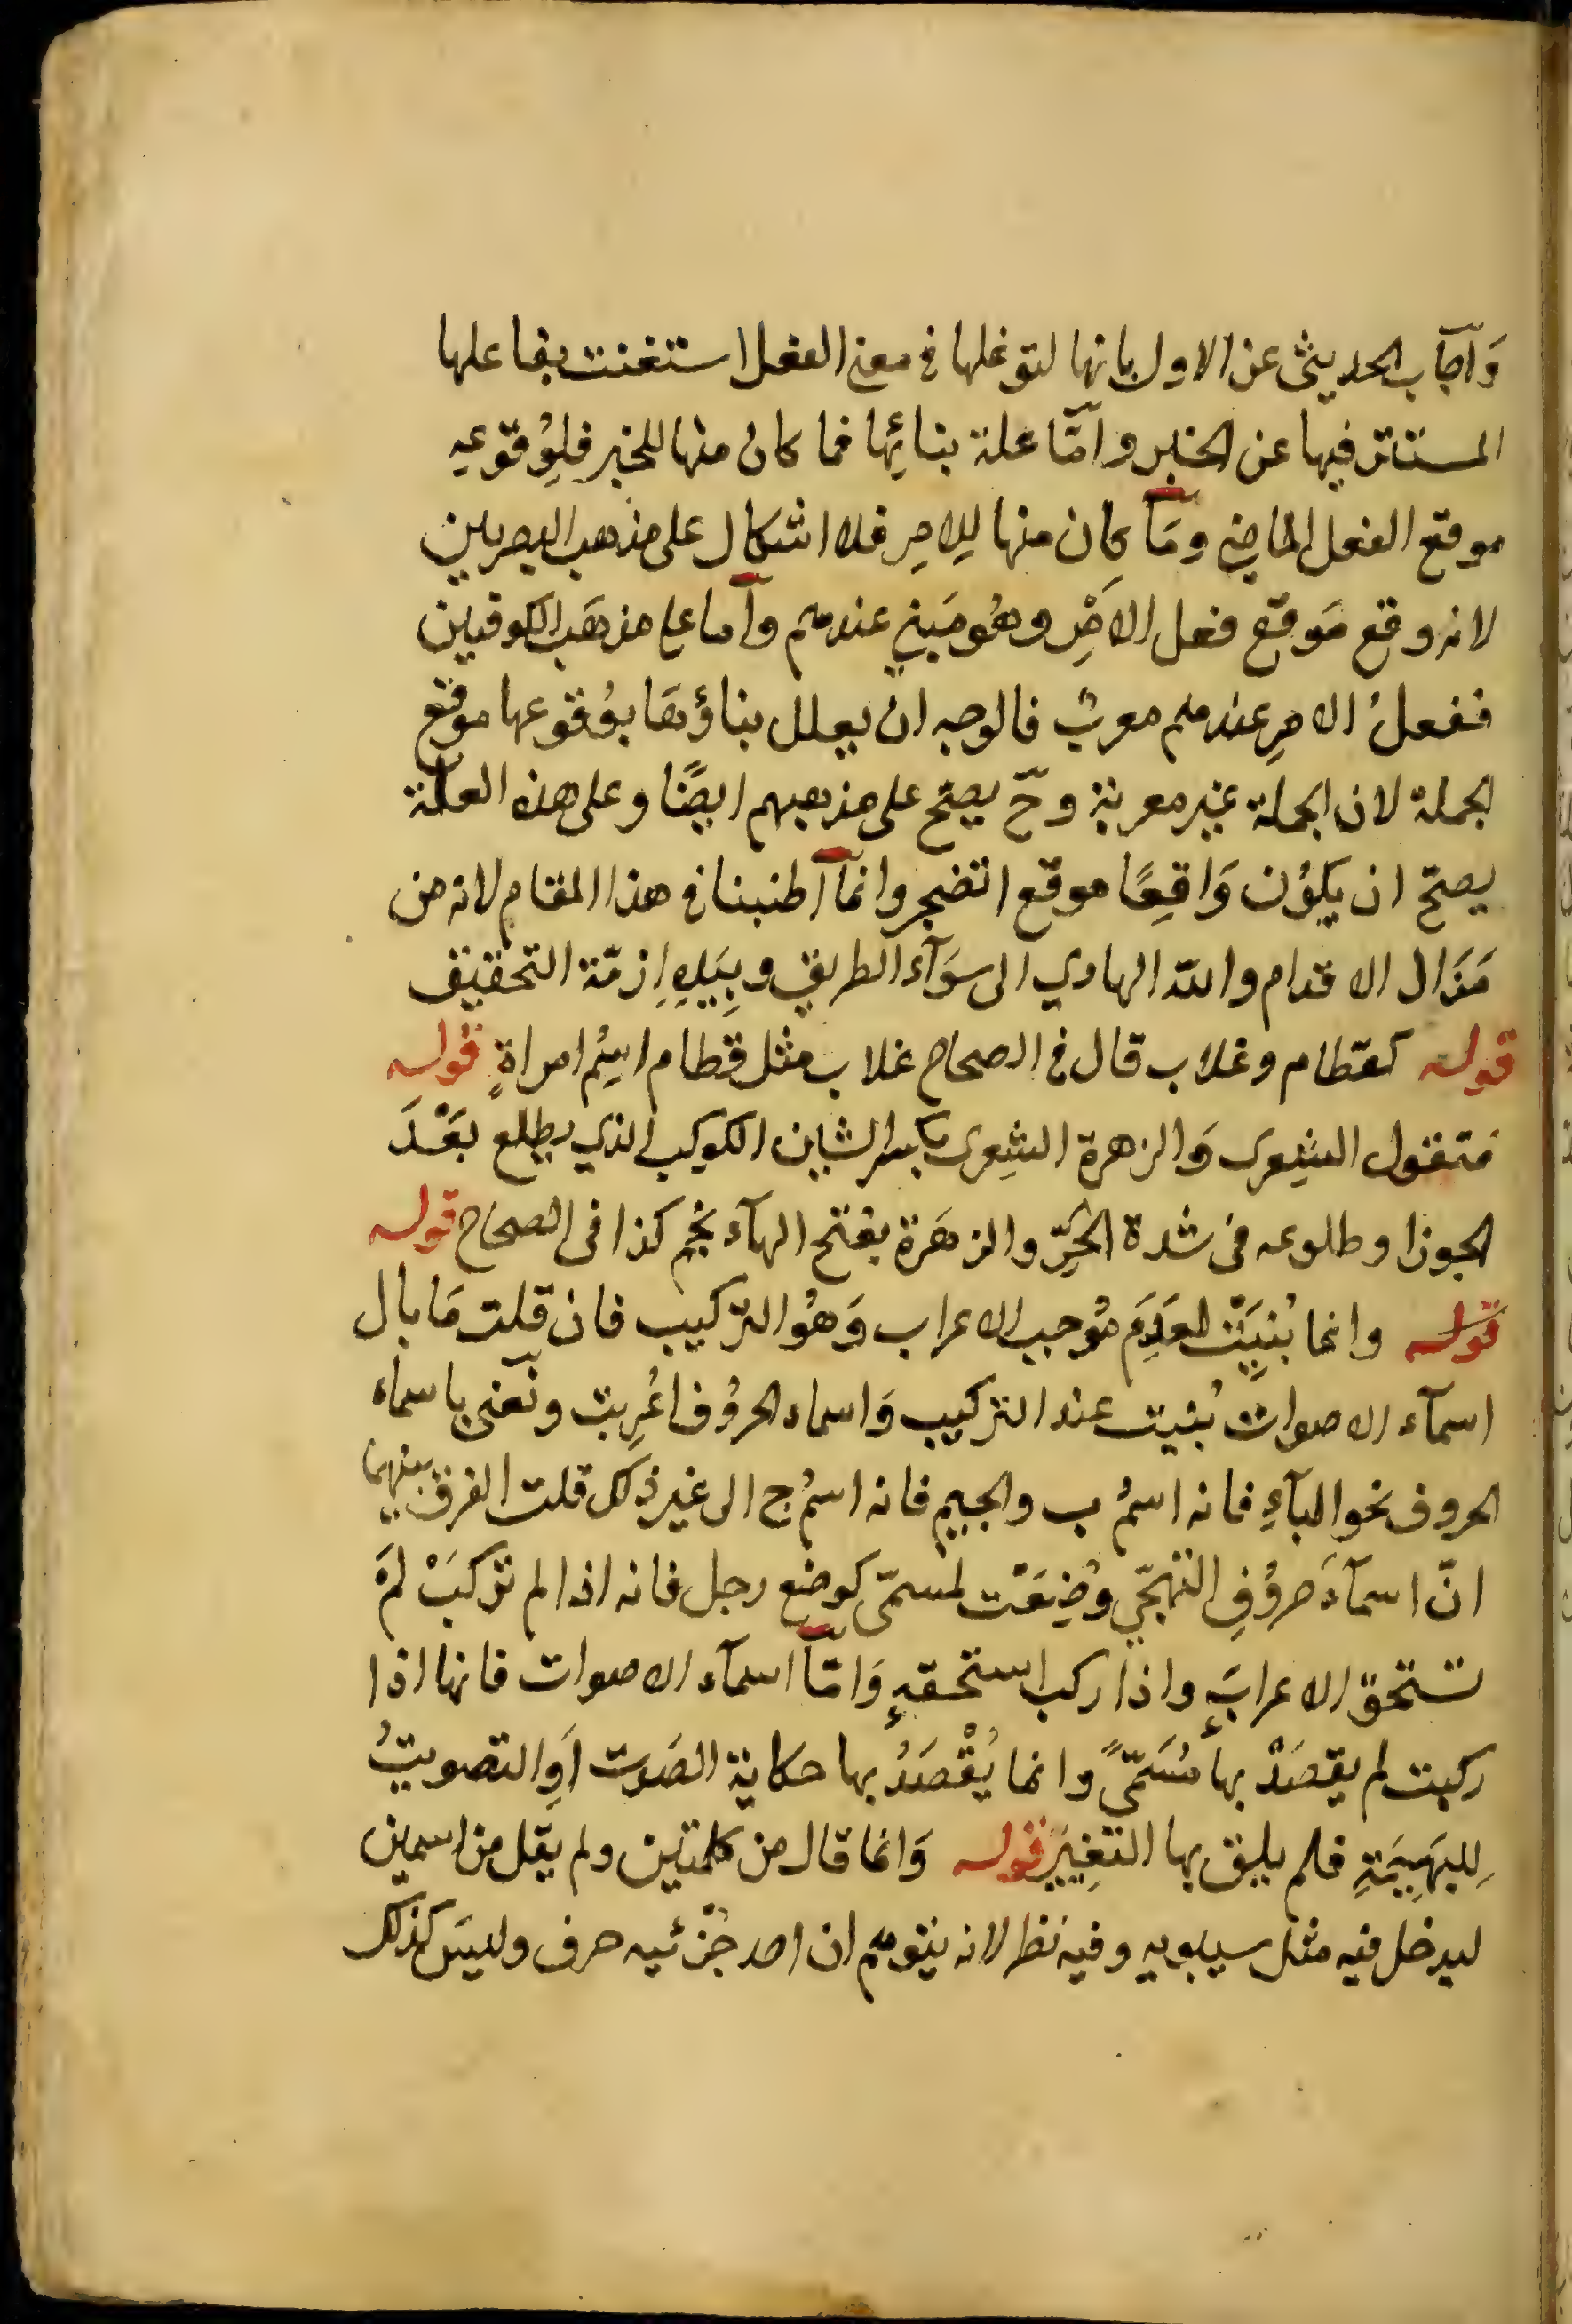 وَاَجَاب الحديثى عن الاول بانها لتوغلها فى معنى الفعل استغنت بفاعلها
المستتر فيها عن الخبر وامّا علة بنائِها فما كان منها للخبر فلِوُقوعه
موقع الفعل الماضى ومَا كان منها لِلامِرِ فلا اشكال على مذهب البصريين
لانه وقع مَوقع فعل الامْرِ وهُو مَبنى عندهم وأما على مذهَب الكوفيين
ففعلُ الامرِ عندهم معربٌ فالوجه ان يعلل بناؤهَا بوُقوعها موقع
الجملة لان الجملة غير معربة وحّ يصحّ على مذهبهم ايضًا وعلى هذه العلة
يصحّ ان يكوُن وَاقِعًا موقع اتضجر وانما اطنبنا فى هذا المقام لانه من
مَزَال الاقدام والله الهادي الى سوَآء الطريق وبِيَدِهِ ازمّة التحقيق
قوله كقطام وغلاب قال فى الصحاح غلاب مثل قطام اسِمُ امراةٍ قوله
فتقول الشِعرى وَالزهرة الشِعرى بكسر الشين الكوكب الذي يطلع بَعْدَ
الجوزا وطلوعه فى شدة الحَرِّ والزهَرة بفتح الهآء نجم كذا فى الصحاح قوله
قوله وانما بُنيَتْ لعَدِمَ مُوجب الاعراب وَهُو التركيب فان قلت مَا بال
اسمآء الاصوات بُنيت عند التركيب وَاسماء الحروُف اعُرِبت ونَعنى باسماء
الحروف نحو البآءِ فانه اسمُ ب والجيمِ فانه اسمُ ج الى غير ذلك قلت الفرق بينهما
انّ اسمآءَ حروُفِ التهجّي وُضِعَت لمسمّى كوضع رجل فانه اذا لم تركبْ لمَ
تستحق الاعرابَ واذا ركب استحقه وَامّا اسمآء الاصوات فانها اذا
ركبت لم يقصَدْ بها مُسَمّىً وانما يُقْصَدُ بها حكاية الصَوت اَوِ التصويتُ
لِلبَهِيمَةِ فلم يليق بها التغِييَر قوله وَانما قال من كلمتين ولم يقل من اسمين
ليدخل فيه مثل سيبويه وفيه نظر لانه يتوهم ان احد جُزْئيه حرف وليسَ كذلك